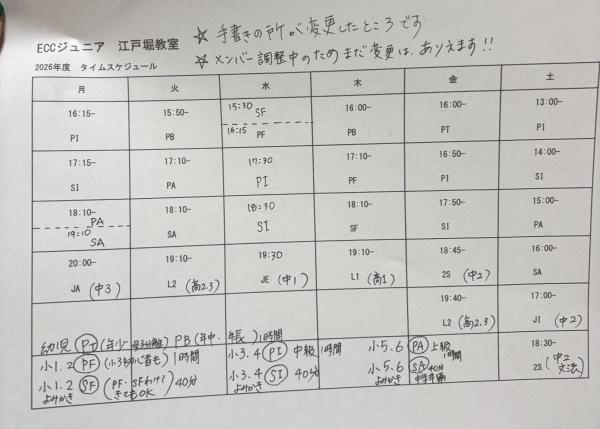 ECCジュニア 江戸堀教室
☆ 手書きの所が変更したところです
2026年度 タイムスケジュール
☆ メンバー調整中のためまだ変更は、ありえます!!
月 火 水 木 金 土
16:15- 15:50- 15:30 SF 16:00- 16:00- 13:00-
PI PB 16:15 PF PB PT PI
17:15- 17:10- 17:30 17:10- 16:50- 14:00-
SI PA PI PF PI SI
18:10- PA 18:10- 18:30 18:10- 17:50- 15:00-
19:10 SA SA SI SF SI PA
20:00- 19:10- 19:30 19:10- 18:45- 16:00-
JA (中3) L2 (高2.3) JE (中1) L1 (高1) 2S (中2) SA
19:40- 17:00-
L2 (高2.3) J1 (中2)
幼児 PI (年少 母子分離) PB (年中・年長) 1時間
小1.2 PF (小3初心者も) 1時間 小3.4 PI 中級 1時間 小5.6 PA 上級 1時間 18:30-
小1.2 SF (PF・SFわけてきてもOK) 40分 小3.4 SI 40分 小5.6 SA 40分 2S (中2文法)
よみかき よみかき よみかき 中学準備